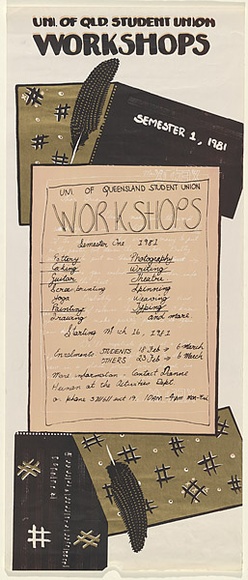 UNI. OF QLD. STUDENT UNION
WORKSHOPS
SEMESTER 1, 1981
UNI. OF QUEENSLAND STUDENT UNION
WORKSHOPS
Semester One 1981
Pottery Photography
Writing
Guitar Theatre
Screen printing Spinning
Yoga Weaving
Painting Typing
Drawing and more
Starting March 16, 1981
Enrolments STUDENTS 18 Feb → 6 March
OTHERS 23 Feb → 6 March
More information - Contact
at the Activities Dept
or phone